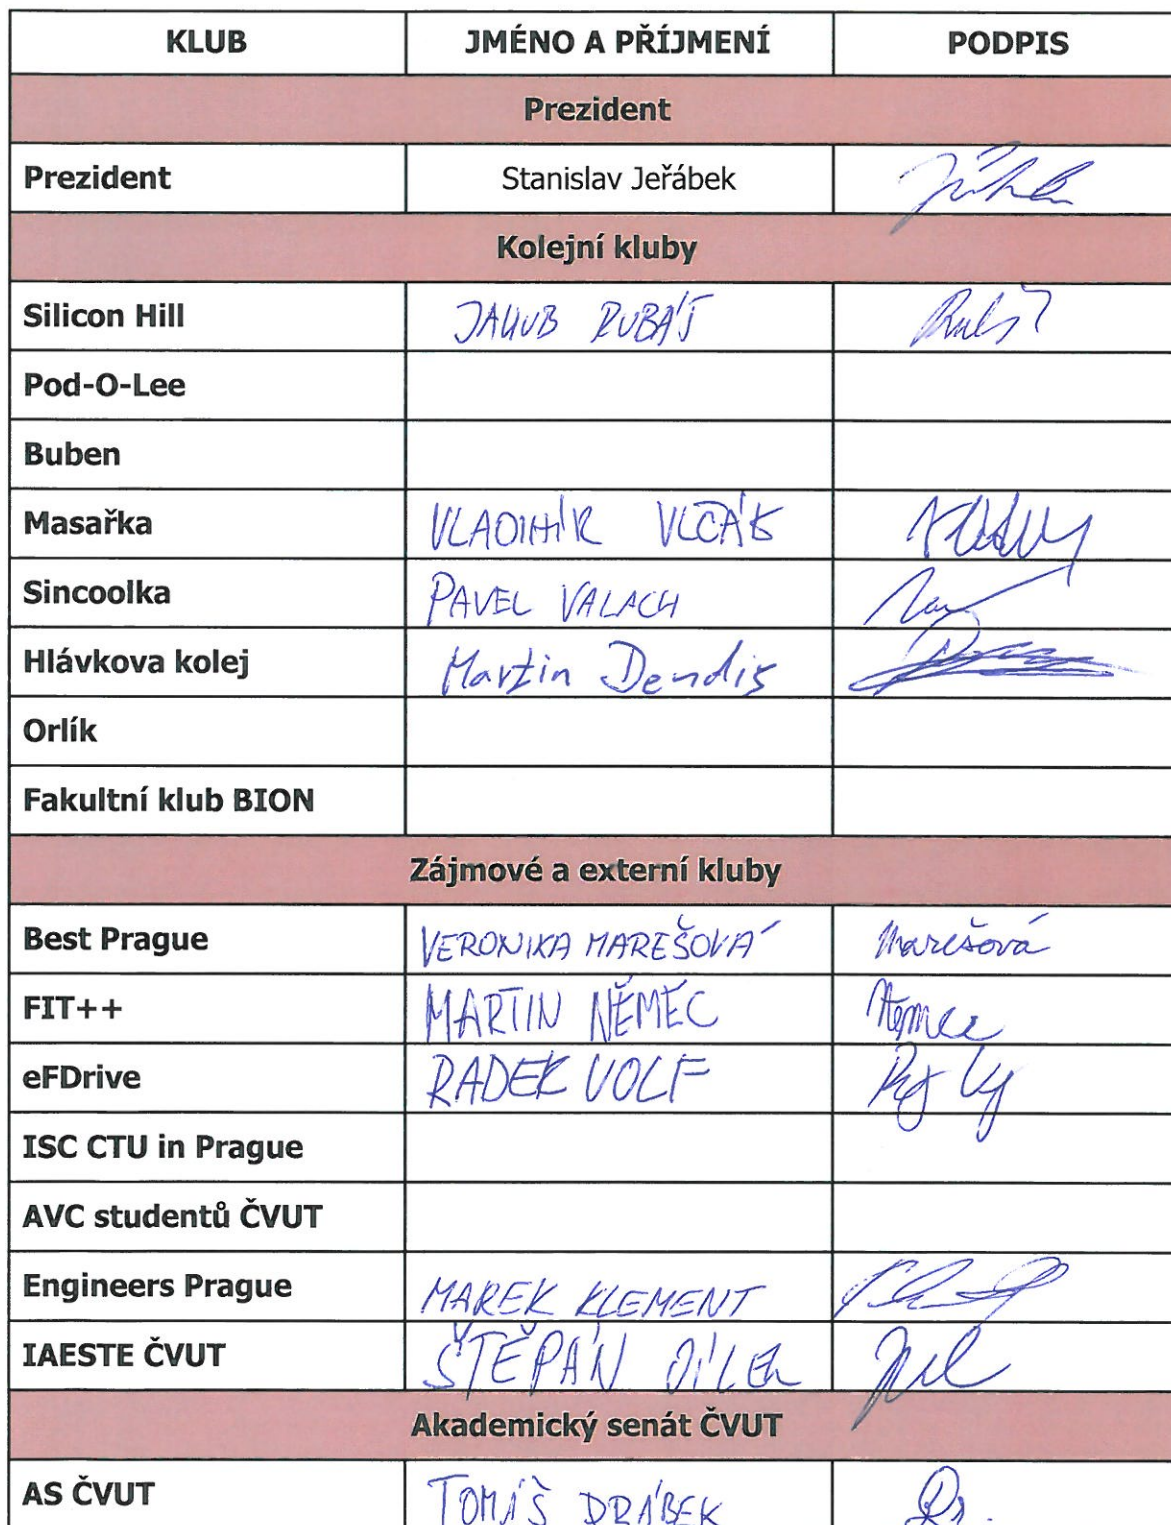 KLUB JMÉNO A PŘÍJMENÍ PODPIS
Prezident
Prezident Stanislav Jeřábek
Kolejní kluby
Silicon Hill JAKUB RUBÁŠ
Pod-O-Lee
Buben
Masařka VLADIMÍR VLČÁK
Sincoolka PAVEL VALACH
Hlávkova kolej Martin Dendis
Orlík
Fakultní klub BION
Zájmové a externí kluby
Best Prague VERONIKA MAREŠOVÁ Marešová
FIT++ MARTIN NĚMEC Němec
eFDrive RADEK VOLF
ISC CTU in Prague
AVC studentů ČVUT
Engineers Prague MAREK KLEMENT
IAESTE ČVUT ŠTĚPÁN
Akademický senát ČVUT
AS ČVUT TOMÁŠ DRÁBEK